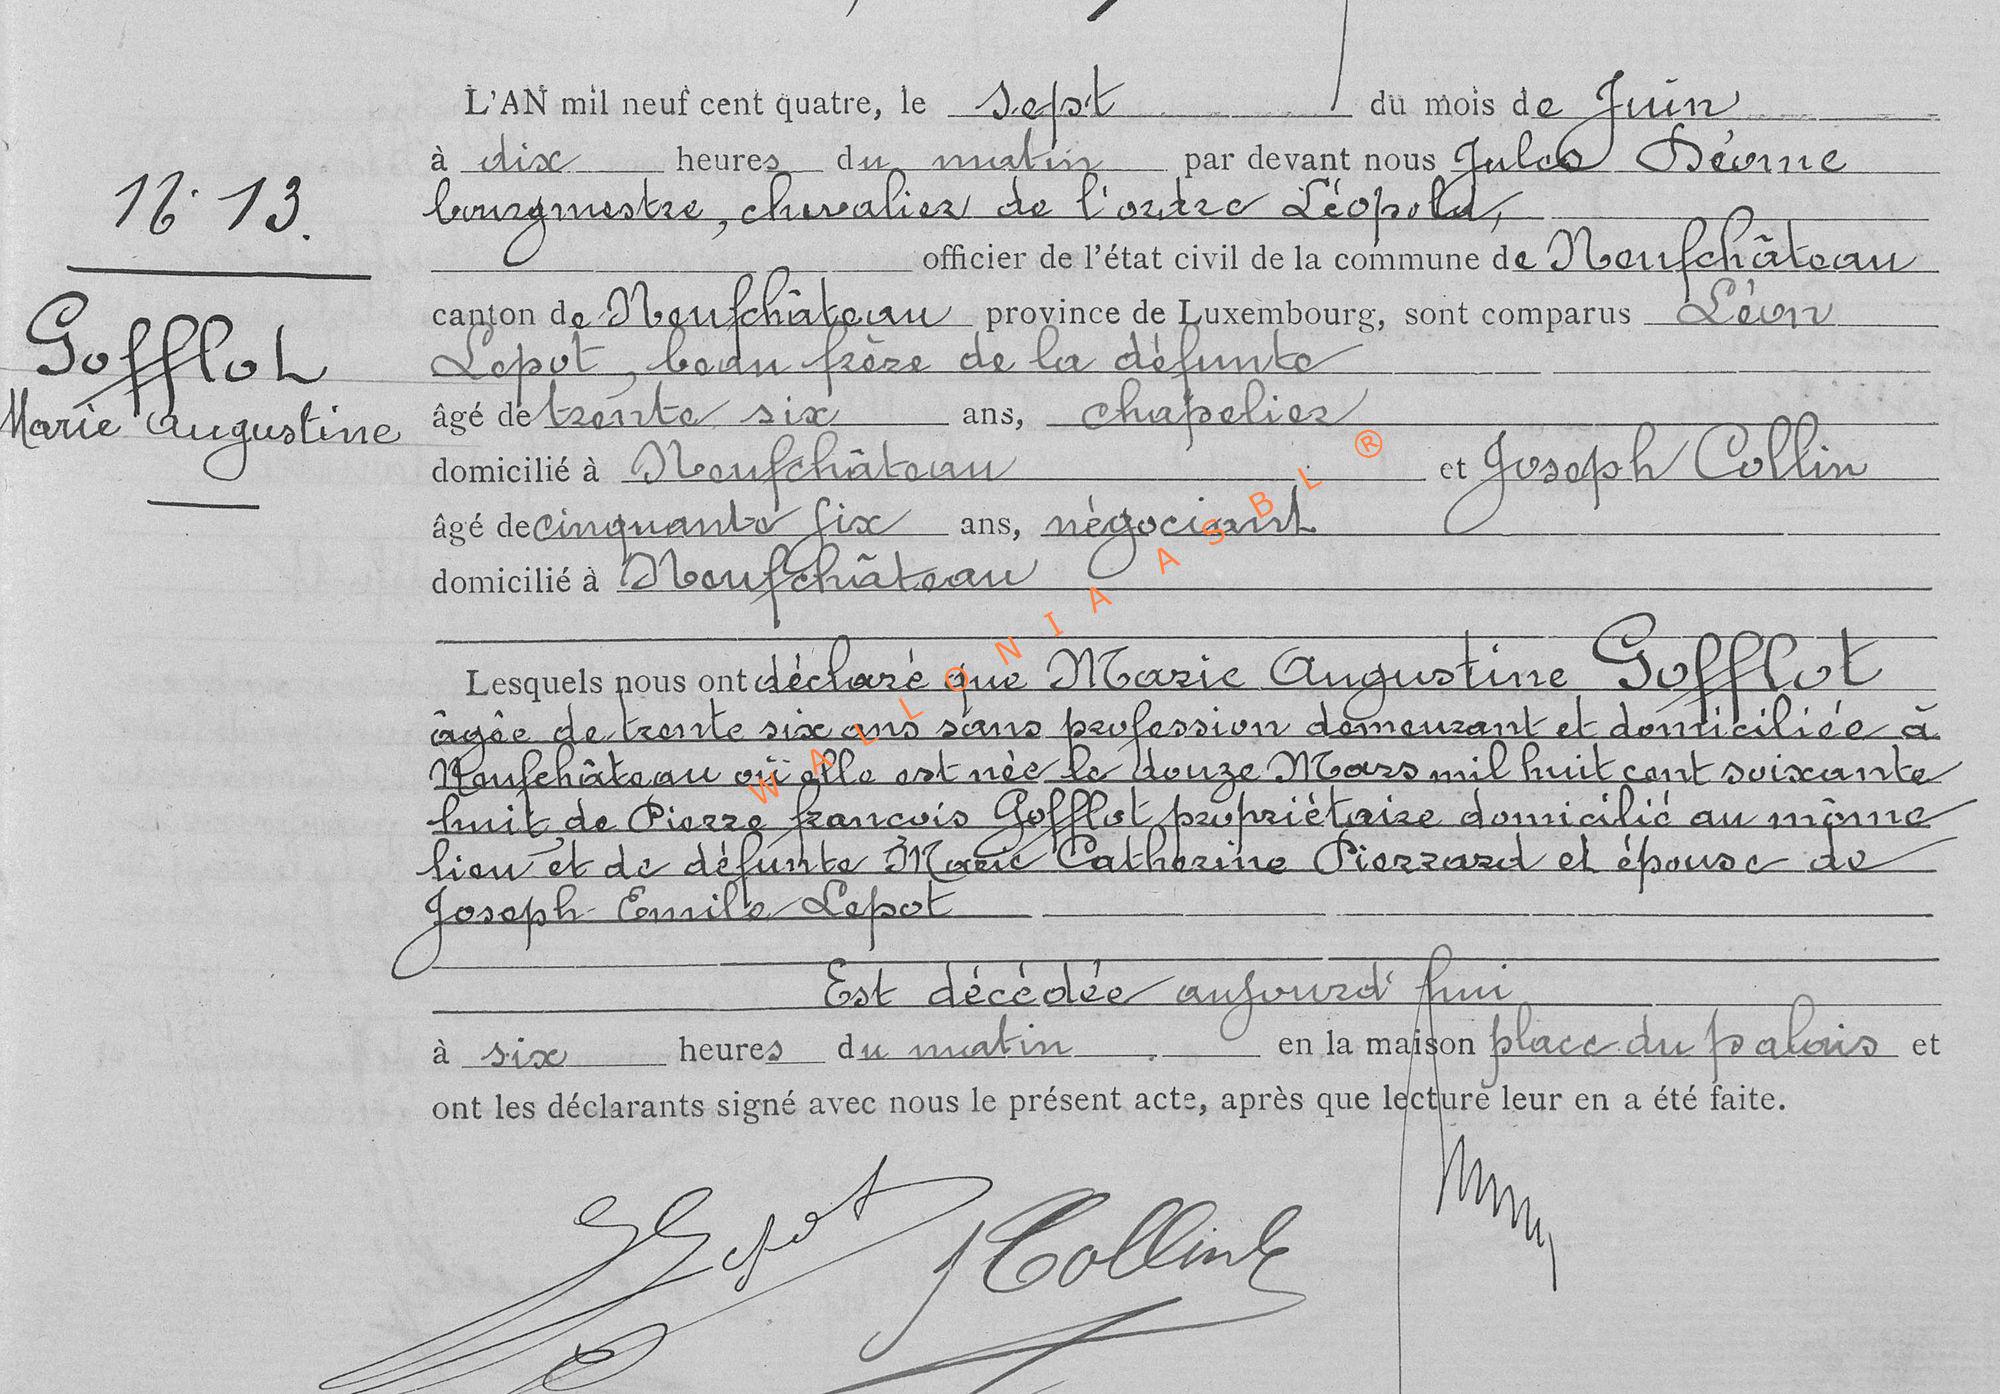 L'AN mil neuf cent quatre, le sept du mois de Juin
à dix heures du matin par devant nous Jules
bourgmestre, chevalier de l'ordre Léopold,
officier de l'état civil de la commune de Neufchâteau
canton de Neufchâteau province de Luxembourg, sont comparus Léon
Lepot, beau frère de la défunte
âgé de trente six ans, chapelier
domicilié à Neufchâteau et Joseph Collin
âgé de cinquante six ans, négociant
domicilié à Neufchâteau
Lesquels nous ont déclaré que Marie Augustine Gofflot
âgée de trente six ans sans profession demeurant et domiciliée à
Neufchâteau où elle est née le douze Mars mil huit cent soixante
huit, de Pierre françois Gofflot propriétaire domicilié au même
lieu et de défunte Marie Catherine Pierrard et épouse de
Joseph Emile Lepot
Est décédée aujourd'hui
à six heures du matin en la maison place du palais et
ont les déclarants signé avec nous le présent acte, après que lecture leur en a été faite.
N° 13.
Gofflot
Marie Augustine
Lepot
J Collin
WALLONIA ASBL ®